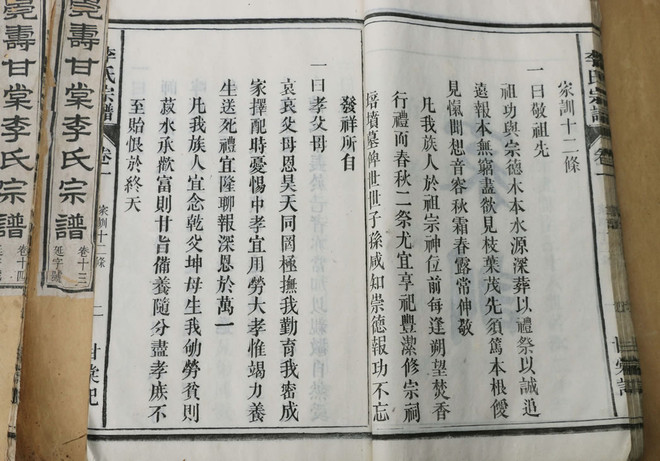 家訓十二條
一曰敬祖先
祖功與宗德木本水源深葬以禮祭以誠追
遠報本無窮盡欲見枝葉茂先須篤本根僾
見愾聞想音容秋霜春露常伸敬
凡我族人於祖宗神位前每逢朔望焚香
行禮而春秋二祭尤宜享祀豐潔修宗祠
培墳墓俾世世子孫咸知崇德報功不忘
發祥所自
一曰孝父母
哀哀父母恩昊天同罔極撫我勤育我密成
家擇配時憂惕中孝宜用勞大孝惟竭力養
生送死禮宜隆聊報深恩於萬一
凡我族人宜念乾父坤母生我劬勞貧則
菽水承歡富則甘旨備養隨分盡孝庶不
至貽恨於終天
李氏宗譜
卷一
家訓十二條
二
甘棠記
莞壽甘棠李氏宗譜
卷十三
莞壽甘棠李氏宗譜
卷十四